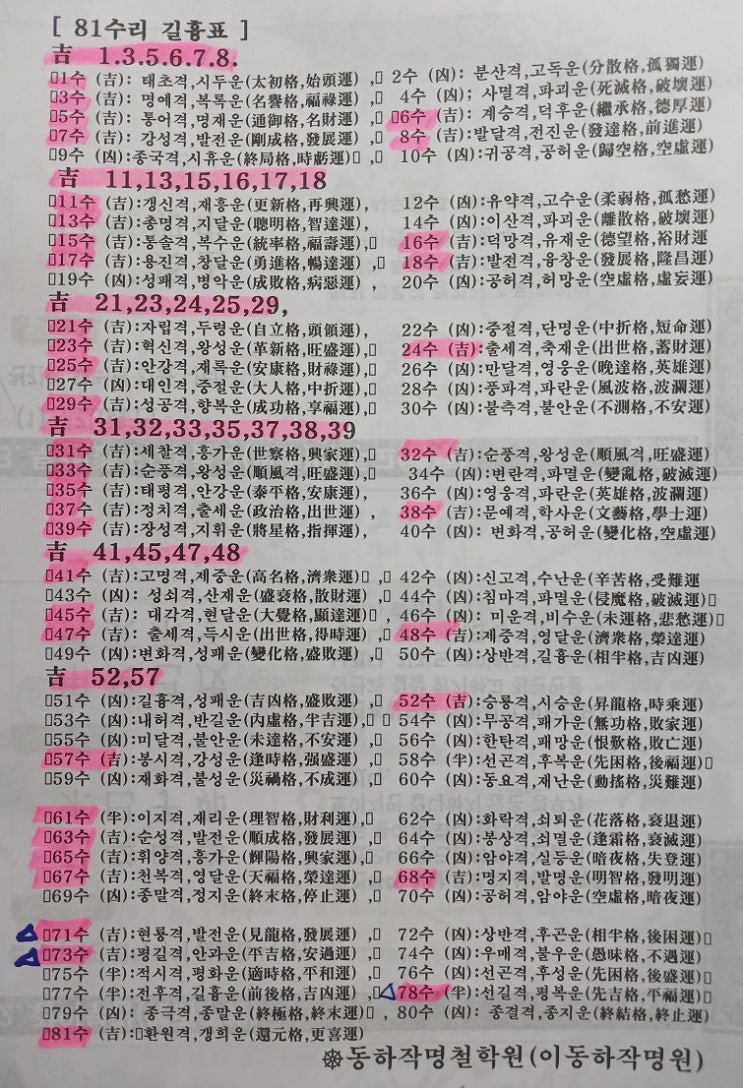 [ 81수리 길흉표 ]
吉 1.3.5.6.7.8.
▯1수 (吉): 태초격,시두운(太初格,始頭運) ,▯ 2수 (凶): 분산격,고독운(分散格,孤獨運)
▯3수 (吉): 명예격,복록운(名譽格,福祿運) 4수 (凶); 사멸격,파괴운(死滅格,破壞運)
▯5수 (吉): 통어격,명재운(通御格,名財運) ▯6수 (吉): 계승격,덕후운(繼承格,德厚運)
▯7수 (吉): 강성격,발전운(剛成格,發展運) , 8수 (吉):발달격,전진운(發達格,前進運)
▯9수 (凶):종국격,시휴운(終局格,時虧運)▯ ,▯ 10수 (凶):귀공격,공허운(歸空格,空虛運)
吉 11,13,15,16,17,18
▯11수 (吉):갱신격,재흥운(更新格,再興運), 12수 (凶):유약격,고수운(柔弱格,孤愁運)
▯13수 (吉):총명격,지달운(聰明格,智達運), 14수 (凶):이산격,파괴운(離散格,破壞運)
▯15수 (吉):통솔격,복수운(統率格,福壽運),▯ 16수 (吉):덕망격,유재운(德望格,裕財運
▯17수 (吉):용진격,창달운(勇進格,暢達運) ,▯ 18수 (吉):발전격,융창운(發展格,隆昌運)
▯19수 (凶):성패격,병악운(成敗格,病惡運) , 20수 (凶):공허격,허망운(空虛格,虛妄運)
吉 21,23,24,25,29,
▯21수 (吉):자립격,두령운(自立格,頭領運), 22수 (凶):중절격,단명운(中折格,短命運)
▯23수 (吉):혁신격,왕성운(革新格,旺盛運),▯ 24수 (吉):출세격,축재운(出世格,蓄財運)
▯25수 (吉):안강격,재록운(安康格,財祿運),▯ 26수 (凶):만달격,영웅운(晩達格,英雄運)
▯27수 (凶):대인격,중절운(大人格,中折運),▯ 28수 (凶):풍파격,파란운(風波格,波瀾運)
▯29수 (吉):성공격,향복운(成功格,享福運),▯ 30수 (凶):불측격,불안운(不測格,不安運)
吉 31,32,33,35,37,38,39
▯31수 (吉):세찰격,흥가운(世察格,興家運),▯ 32수 (吉):순풍격,왕성운(順風격,旺盛運)
▯33수 (吉):순풍격,왕성운(順風격,旺盛運),▯ 34수 (凶):변란격,파멸운(變亂格,破滅運)
▯35수 (吉):태평격,안강운(泰平格,安康運), 36수 (凶):영웅격,파란운(英雄格,波瀾運)
▯37수 (吉):정치격,출세운(政治格,出世運) , 38수 (吉):문예격,학사운(文藝格,學士運)
▯39수 (吉):장성격,지휘운(將星格,指揮運), 40수 (凶): 변화격,공허운(變化格,空虛運)
吉 41,45,47,48
▯41수 (吉):고명격,제중운(高名格,濟衆運)▯ ,▯ 42수 (凶):신고격,수난운(辛苦格,受難運
▯43수 (凶): 성쇠격,산재운(盛衰格,散財運) ,▯ 44수 (凶):침마격,파멸운(侵魔格,破滅運)▯
▯45수 (吉): 대각격,현달운(大覺格,顯達運)▯ , 46수 (凶): 미운격,비수운(未運格,悲愁運)▯
▯47수 (吉): 출세격,득시운(出世格,得時運) ,▯ 48수 (吉):제중격,영달운(濟衆格,榮達運)
▯49수 (凶):변화격,성패운(變化格,盛敗運) ,▯ 50수 (凶):상반격,길흉운(相半格,吉凶運)
吉 52,57
▯51수 (凶):길흉격,성패운(吉凶格,盛敗運) ,▯ 52수 (吉):승룡격,시승운(昇龍格,時乘運)
▯53수 (凶):내허격,반길운(內虛格,半吉運),▯ ▯ 54수 (凶):무공격,패가운(無功格,敗家運)
▯55수 (凶):미달격,불안운(未達格,不安運) ,▯ 56수 (凶):한탄격,패망운(恨歎格,敗亡運)
▯57수 (吉):봉시격,강성운(逢時格,强盛運) ,▯ 58수 (半):선곤격,후복운(先困格,後福運)▯
▯59수 (凶):재화격,불성운(災禍格,不成運) ,▯ 60수 (凶):동요격,재난운(動搖格,災難運)
▯61수 (半):이지격,재리운(理智格,財利運),▯ 62수 (凶):화락격,쇠퇴운(花落格,衰退運)
▯63수 (吉):순성격,발전운(順成格,發展運) ,▯ 64수 (凶):봉상격,쇠멸운(逢霜格,衰滅運)
▯65수 (吉):휘양격,흥가운(輝陽格,興家運),▯ 66수 (凶):암야격,실등운(暗夜格,失登運)
▯67수 (吉):천복격,영달운(天福格,榮達運) ,▯ 68수 (吉):명지격,발명운(明智格,發明運)
▯69수 (凶):종말격,정지운(終末格,停止運) ,▯ 70수 (凶):공허격,암야운(空虛格,暗夜運)
▯71수 (吉):현룡격,발전운(見龍格,發展運) ,▯ 72수 (凶):상반격,후곤운(相半格,後困運)▯
▯73수 (吉):평길격,안과운(平吉格,安過運) ,▯ 74수 (凶):우매격,불우운(愚昧格,不遇運)
▯75수 (半):적시격,평화운(適時格,平和運) ,▯ 76수 (凶):선곤격,후성운(先困格,後盛運)▯
▯77수 (半):전후격,길흉운(前後格,吉凶運) ,▯ 78수 (半):선길격,평복운(先吉格,平福運)▯
▯79수 (凶): 종극격,종말운(終極格,終末運)▯ , 80수 (凶): 종결격,종지운(終結格,終止運)
▯81수 (吉):▯환원격,갱희운(還元格,更喜運)
☸동하작명철학원(이동하작명원)